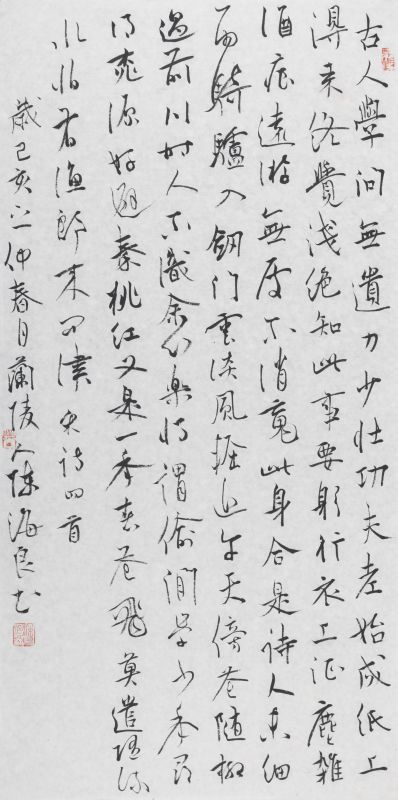 古人學问無遺力少壮功夫老始成紙上
得来终覺淺绝知此事要躬行衣上征塵雜
酒痕遠游無處不消魂此身合是诗人未细
雨騎驢入劍门雲淡風轻近午天傍花随柳
過前川时人不識余心樂将謂偷闲学少年尋
得桃源好避秦桃红又是一年春花飛莫遣随流
水怕有渔郎来问津宋诗四首
歲己亥之仲春月蘭陵人陈海良书